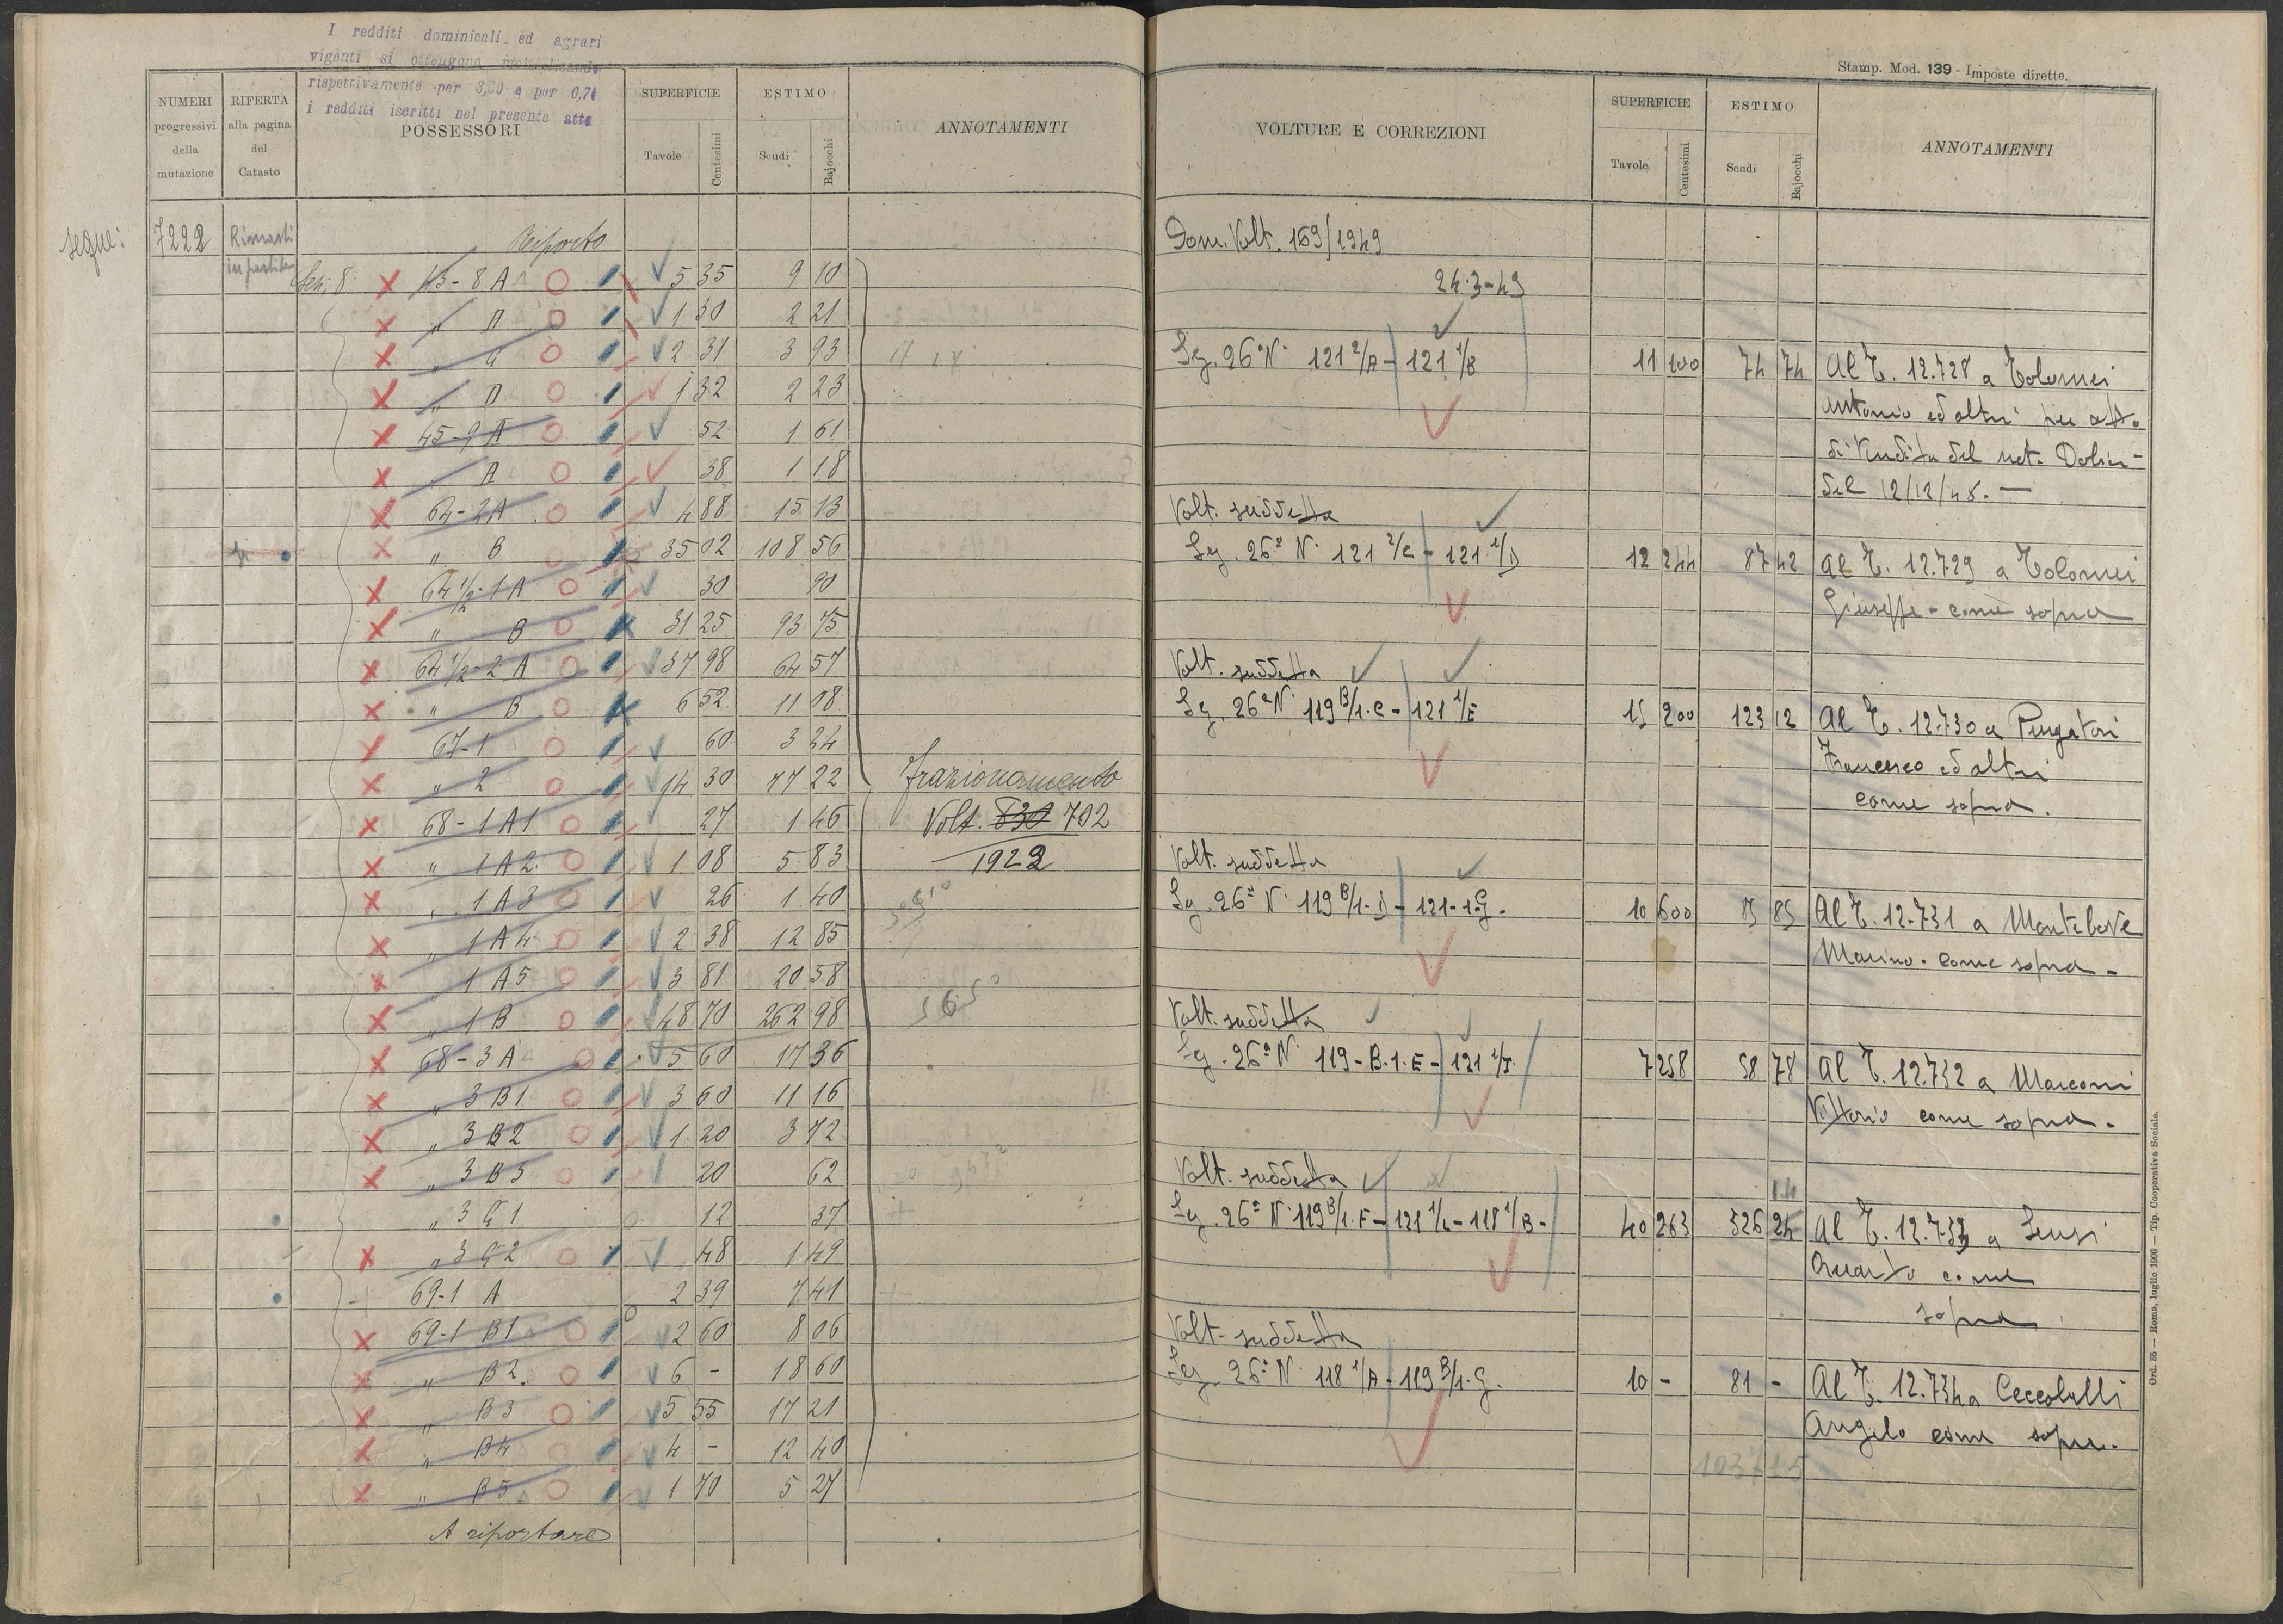 I redditi dominicali ed agrari
vigenti si ottengono moltiplicando
rispettivamente per 3,50 e per 0,74
i redditi iscritti nel presente atto
NUMERI progressivi della mutazione
RIFERTA alla pagina del Catasto
POSSESSORI
SUPERFICIE Tavole Centesimi
ESTIMO Scudi Bajocchi
ANNOTAMENTI
segue: 7222 Rimasti in partita Riporto
45-8A 5 35 9 10
" 1 30 2 21
" 2 31 3 93
" D 1 32 2 23
45-9A 52 1 61
" A 38 1 18
64-2A 4 88 15 13
" B 35 02 108 56
64 1/2-1A 30 90
" B 31 25 93 75
64 1/2-2A 37 98 64 57
" B 6 52 11 08
67-1 60 3 24
" 2 14 30 77 22 frazionamento
68-1A1 27 1 46 Volt. 830 702
" 1A2 1 08 5 83 1922
" 1A3 26 1 40
" 1A4 2 38 12 85
" 1A5 3 81 20 58
" 1B 48 70 262 98
68-3A 5 60 17 36
" 3B1 3 60 11 16
" 3B2 1 20 3 72
" 3B3 20 62
" 3C1 12 37
" 3C2 48 1 49
69-1 A 2 39 7 41
69-1 B1 2 60 8 06
" B2 6 - 18 60
" B3 5 55 17 21
" B4 4 - 12 40
" B5 1 70 5 27
A riportare
Stamp. Mod. 139 - Imposte dirette.
VOLTURE E CORREZIONI
SUPERFICIE Tavole Centesimi
ESTIMO Scudi Bajocchi
ANNOTAMENTI
Dom. Volt. 169/1949
24-3-49
Sez. 26ª N. 121 2/A - 121 1/B 11 100 74 74 Al T. 12.728 a Tolomei
Antonio ed altri per atto
di Vendita del not.
del 12/12/48. -
Volt. suddetta
Sez. 26ª N. 121 2/C - 121 1/D 12 244 87 42 Al T. 12.729 a Tolomei
Giuseppe - come sopra
Volt. suddetta
Sez. 26ª N. 119 B/1.C - 121 1/E 15 200 123 12 Al T. 12.730 a Pungatori
Francesco ed altri
come sopra.
Volt. suddetta
Sez. 26ª N. 119 B/1.D - 121-1.G. 10 600 85 85 Al T. 12.731 a
Marino. come sopra -
Volt. suddetta
Sez. 26ª N. 119-B.1.E - 121 1/I. 7 258 58 78 Al T. 12.732 a Marconi
Vittorio come sopra.
Volt. suddetta
14
Sez. 26ª N. 119 B/1.F - 121 1/L - 118 1/B - 40 263 326 24 Al T. 12.733 a
Quarto come
sopra
Volt. suddetta
Sez. 26ª N. 118 1/A - 119 B/1.G. 10 - 81 - Al T. 12.734 a Ceccolelli
Angelo come sopra.
Ord. 35 — Roma, luglio 1906 — Tip. Cooperativa Sociale.